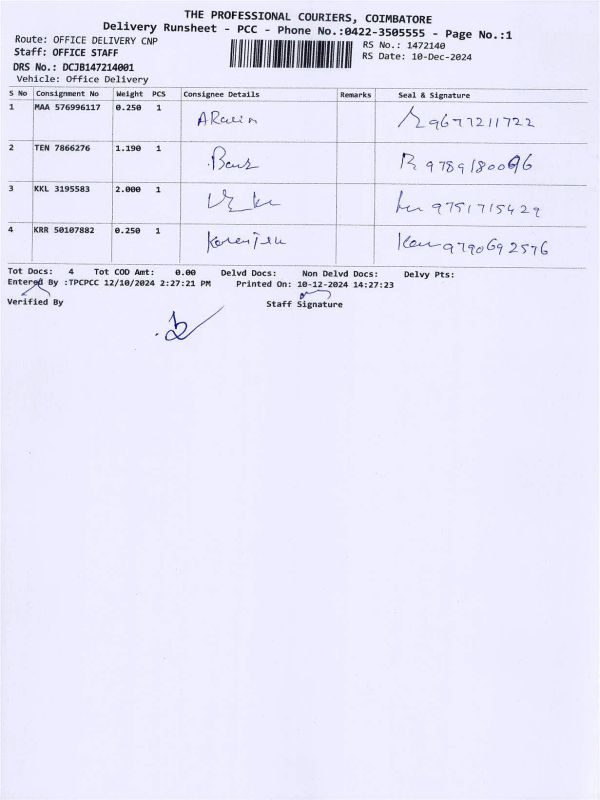 THE PROFESSIONAL COURIERS, COIMBATORE
Delivery Runsheet - PCC - Phone No.:0422-3505555 - Page No.:1
Route: OFFICE DELIVERY CNP
RS No.: 1472140
Staff: OFFICE STAFF
RS Date: 10-Dec-2024
DRS No.: DCJB147214001
Vehicle: Office Delivery
S No Consignment No Weight PCS Consignee Details Remarks Seal & Signature
1 MAA 576996117 0.250 1 9677211722
2 TEN 7866276 1.190 1
3 KKL 3195583 2.000 1 9751715429
4 KRR 50107882 0.250 1 9790692576
Tot Docs: 4 Tot COD Amt: 0.00 Delvd Docs: Non Delvd Docs: Delvy Pts:
Entered By :TPCPCC 12/10/2024 2:27:21 PM Printed On: 10-12-2024 14:27:23
Verified By Staff Signature